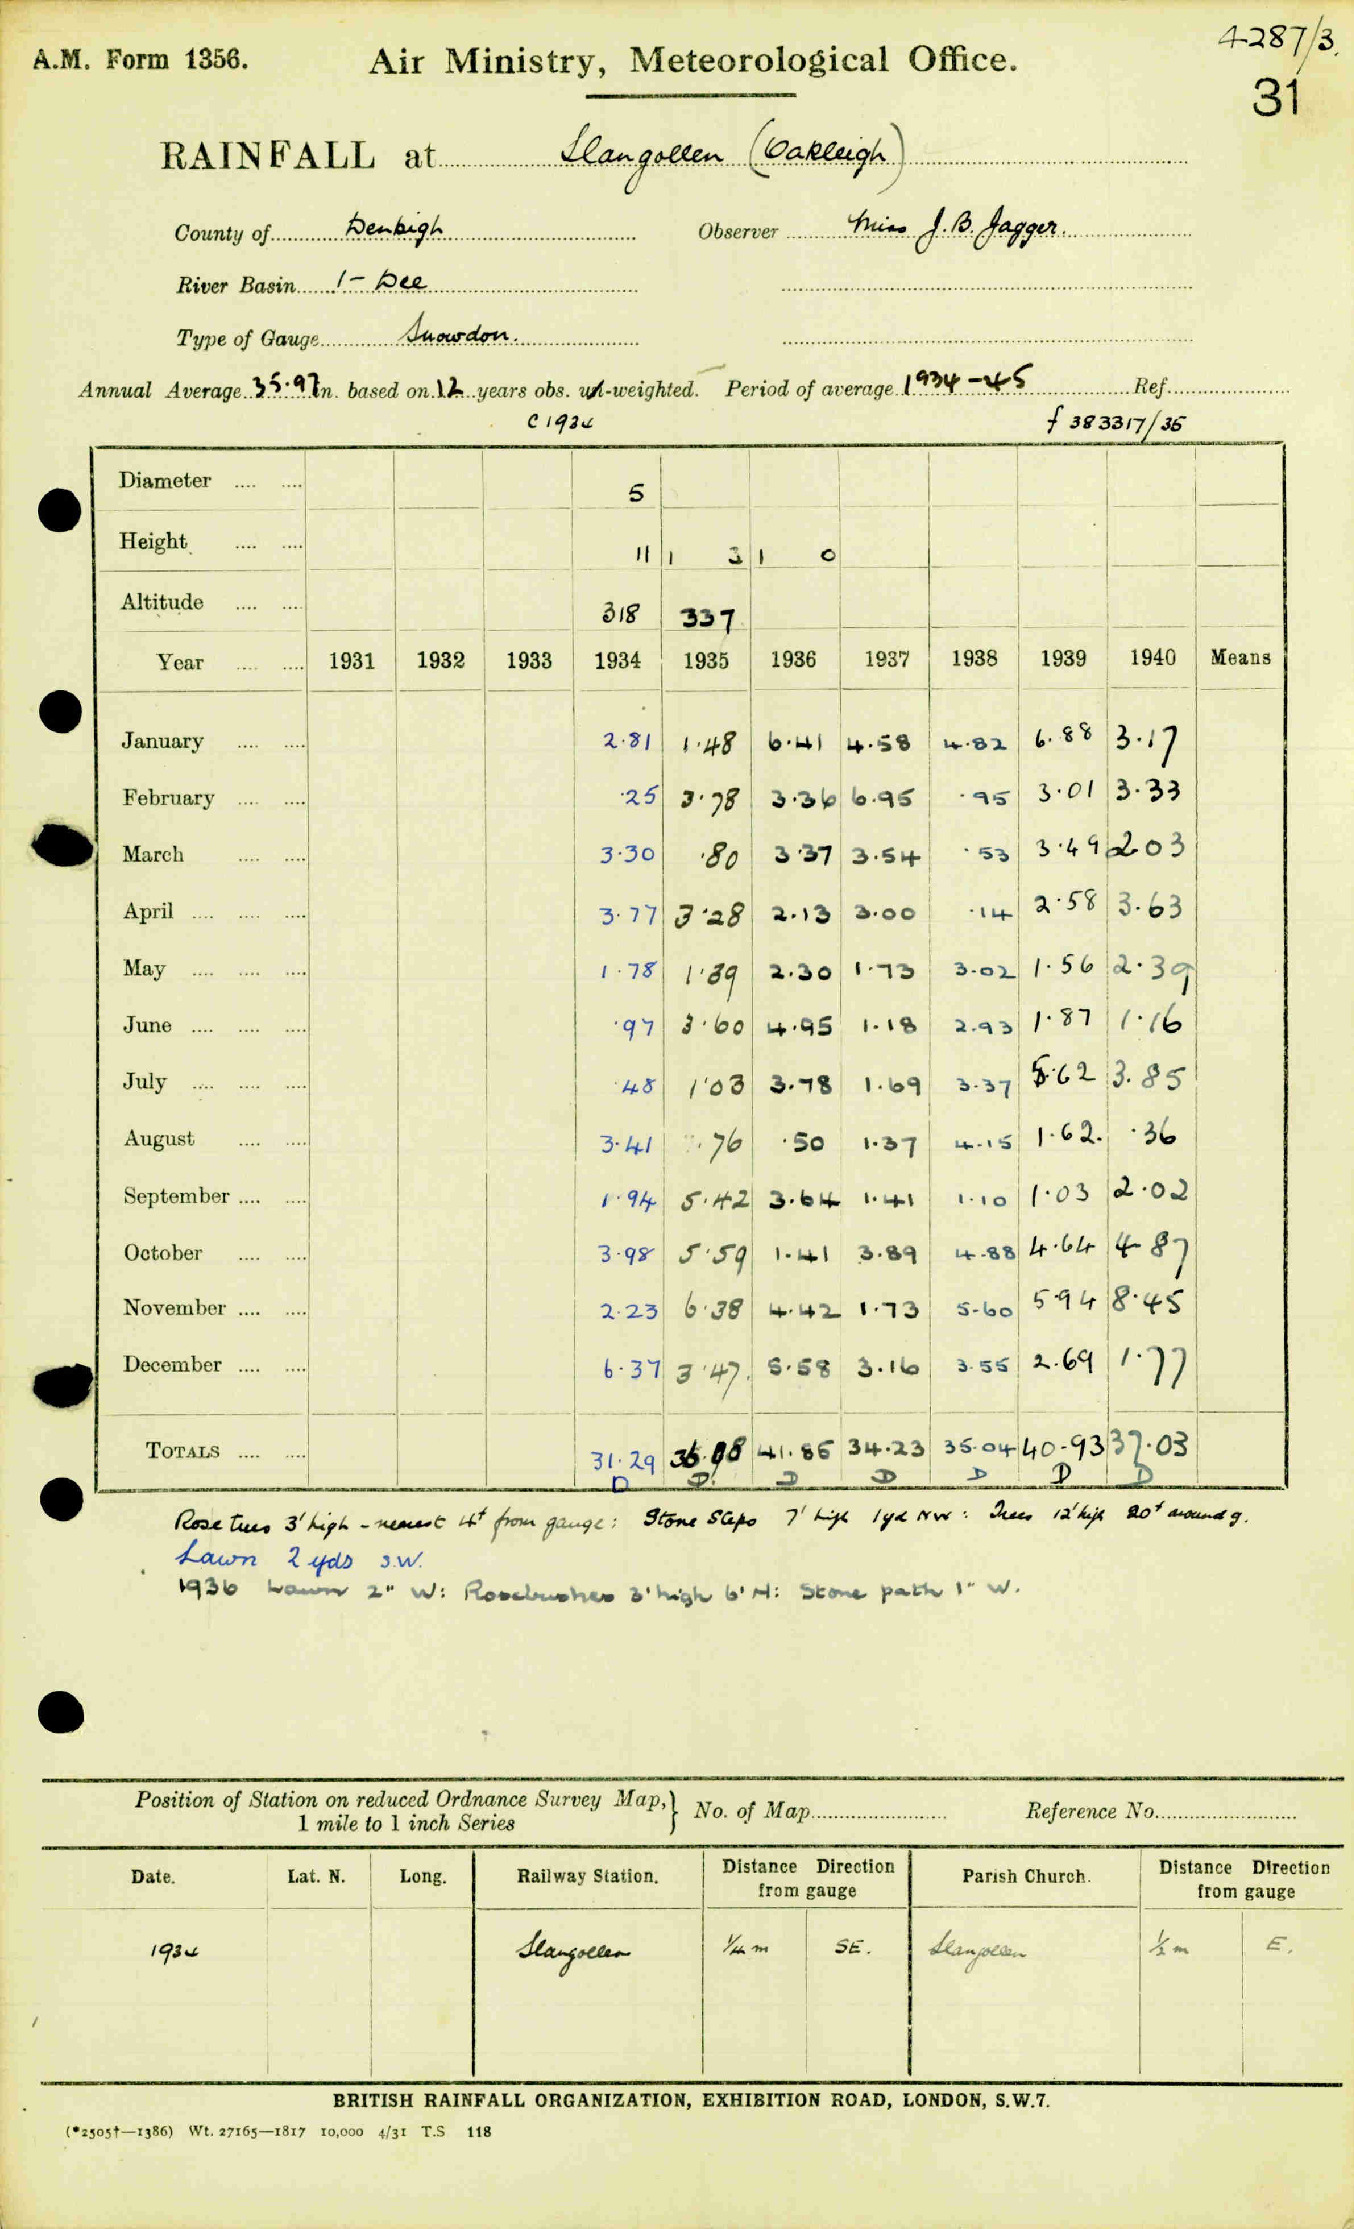 4287/3.
A.M. Form 1356. Air Ministry, Meteorological Office.
31
RAINFALL at Llangollen (Oakleigh)
County of Denbigh Observer Miss J. B. Jagger.
River Basin 1- Dee
Type of Gauge Snowdon.
Annual Average 35.97 in. based on 12 years obs. un-weighted. Period of average 1934-45 Ref.
C 1934 f 383317/35
Diameter 5
Height 11 1 3 1 0
Altitude 318 337
Year 1931 1932 1933 1934 1935 1936 1937 1938 1939 1940 Means
January 2.81 1.48 6.41 4.58 4.82 6.88 3.17
February .25 3.78 3.36 6.95 .95 3.01 3.33
March 3.30 .80 3.37 3.54 .53 3.49 2 03
April 3.77 3.28 2.13 3.00 .14 2.58 3.63
May 1.78 1.39 2.30 1.73 3.02 1.56 2.39
June .97 3.60 4.95 1.18 2.93 1.87 1.16
July .48 1.03 3.78 1.69 3.37 5.62 3.85
August 3.41 .76 .50 1.37 4.15 1.62. .36
September 1.94 5.42 3.64 1.41 1.10 1.03 2.02
October 3.98 5.59 1.41 3.89 4.88 4.64 4 87
November 2.23 6.38 4.42 1.73 5.60 5.94 8.45
December 6.37 3.47. 5.58 3.16 3.55 2.69 1.77
TOTALS 31.29 36.98 41.85 34.23 35.04 40.93 37.03
D D. D D D D D
Rose trees 3' high - nearest 4ft from gauge: Stone Steps 7' high 1yd NW: Trees 12' high 20ft around g.
Lawn 2 yds S.W.
1936 Lawn 2" W: Rosebushes 3' high 6' N: Stone path 1" W.
Position of Station on reduced Ordnance Survey Map, } No. of Map Reference No.
1 mile to 1 inch Series
Date. Lat. N. Long. Railway Station. Distance Direction from gauge Parish Church. Distance Direction from gauge
1934 Llangollen ¼ m SE. Llangollen ½ m E.
BRITISH RAINFALL ORGANIZATION, EXHIBITION ROAD, LONDON, S.W.7.
(*2505†—1386) Wt. 27165—1817 10,000 4/31 T.S 118